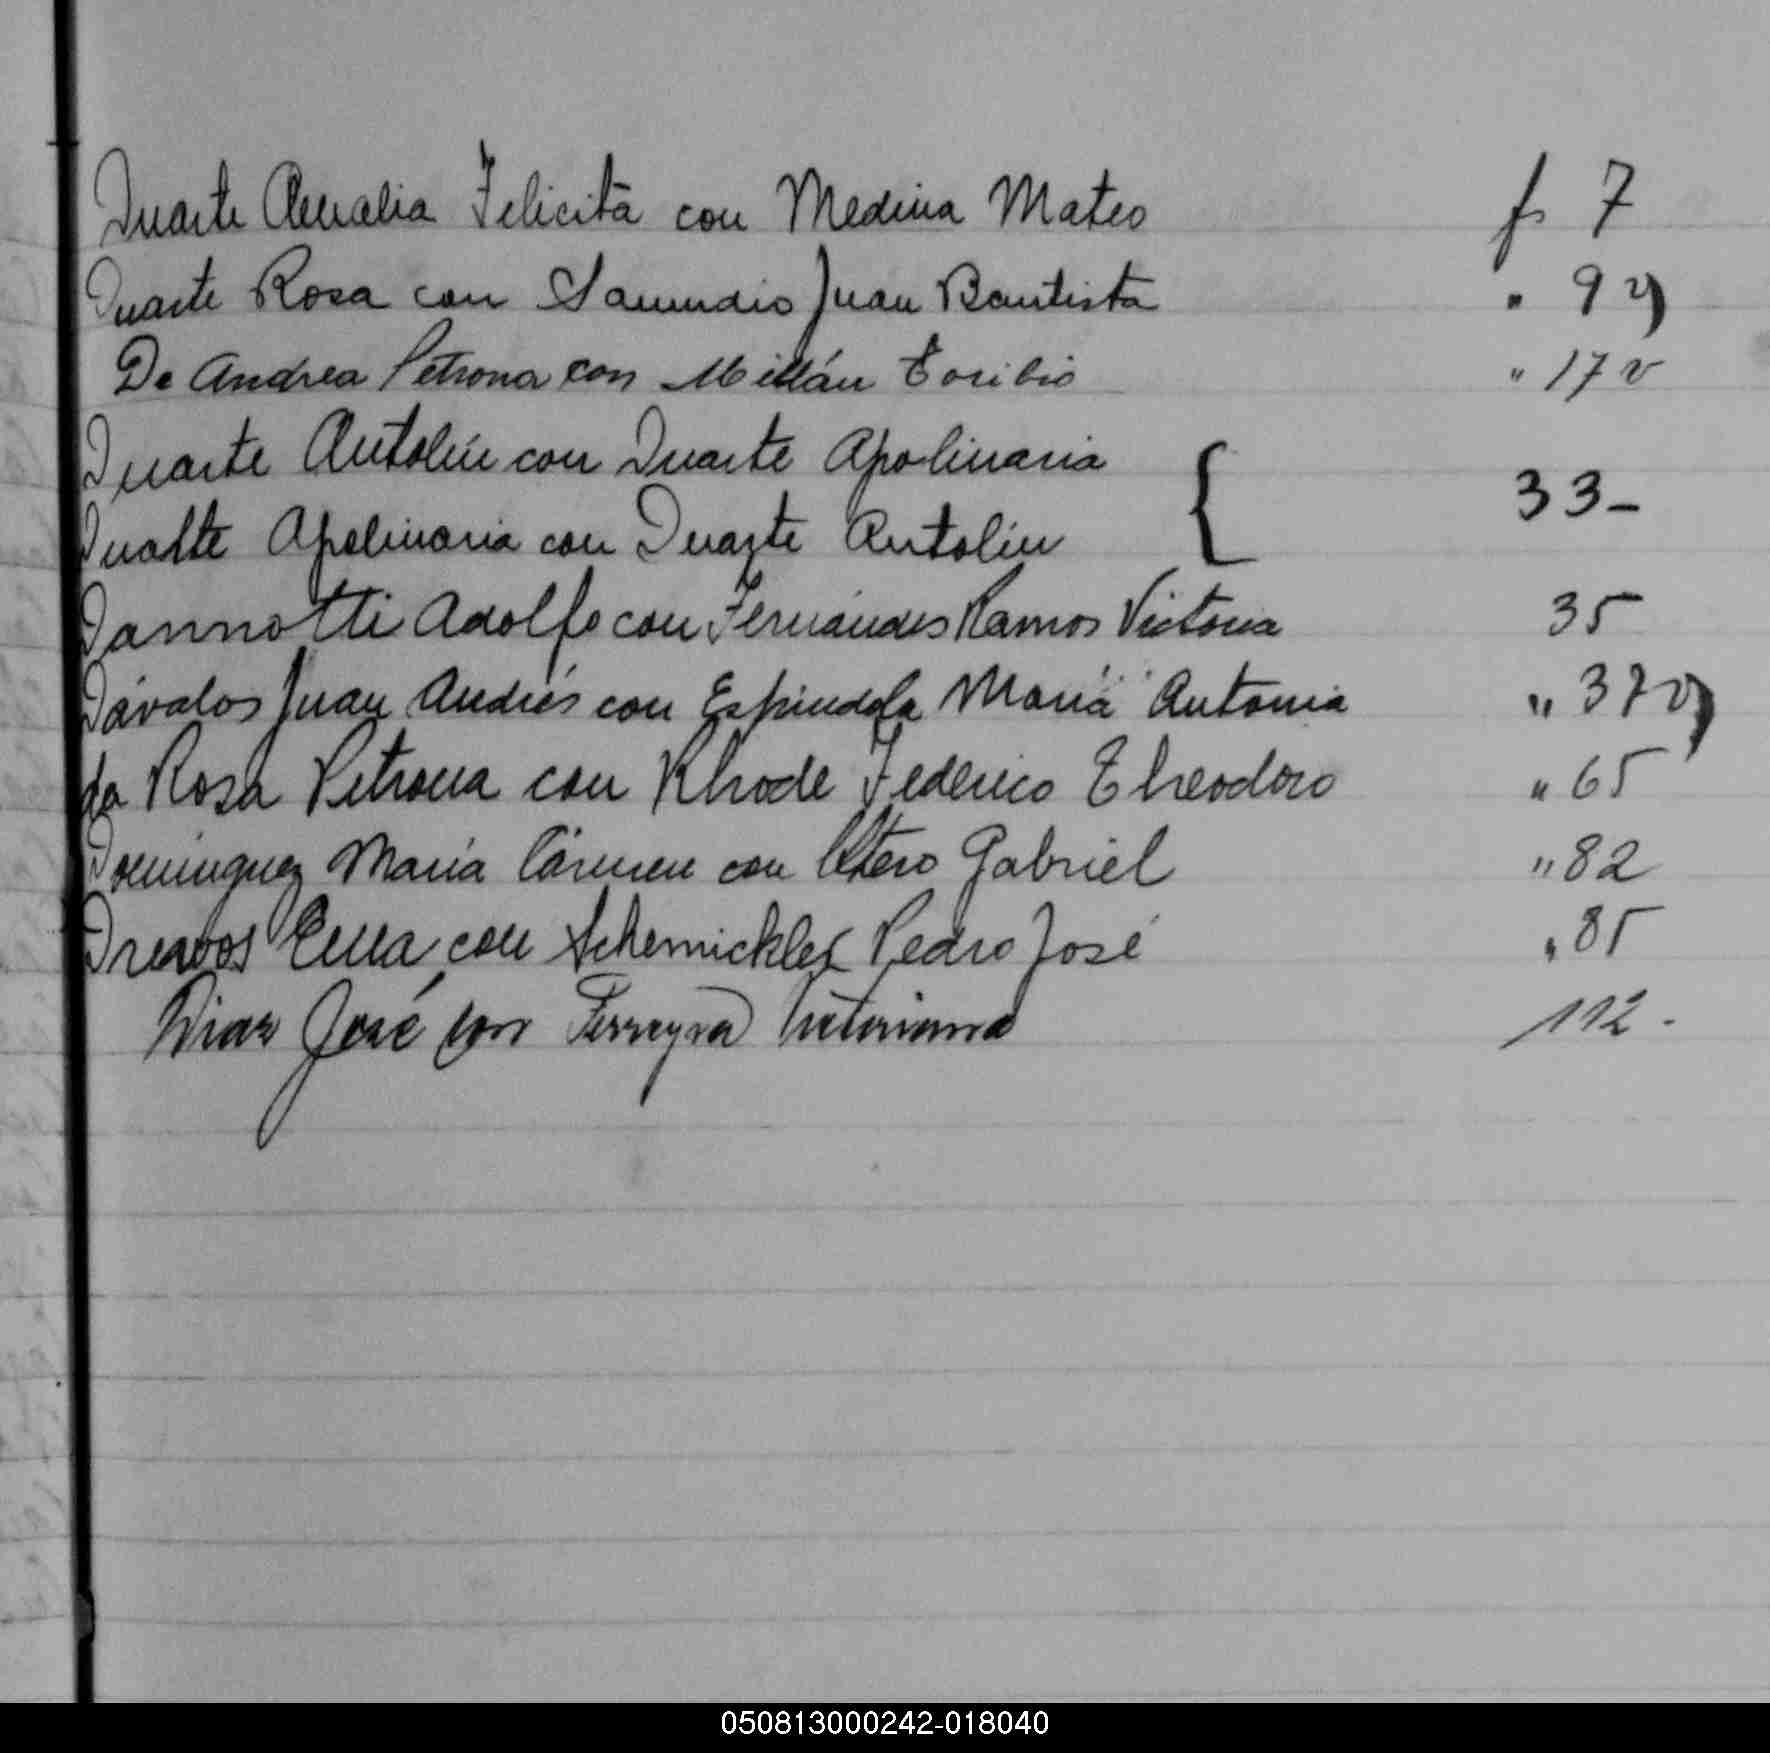 Duarte Amalia Felicita con Medina Mateo fs 7
Duarte Rosa con Samudio Juan Bautista " 9 v
De Andrea Petrona con Millán Toribio " 17 v
Duarte Antolín con Duarte Apolinaria { 33-
Duarte Apolinaria con Duarte Antolin
Dannotti Adolfo con Fernández Ramos Victoria 35
Dávalos Juan Andrés con Espindola María Antonia " 37 v
da Rosa Petrona con Rhode Federico Theodoro " 65
Dominguez María Cármen con Otero Gabriel " 82
Ema con Pedro José " 85
Diaz José con Ferreyra Victoriana 112-
050813000242-018040